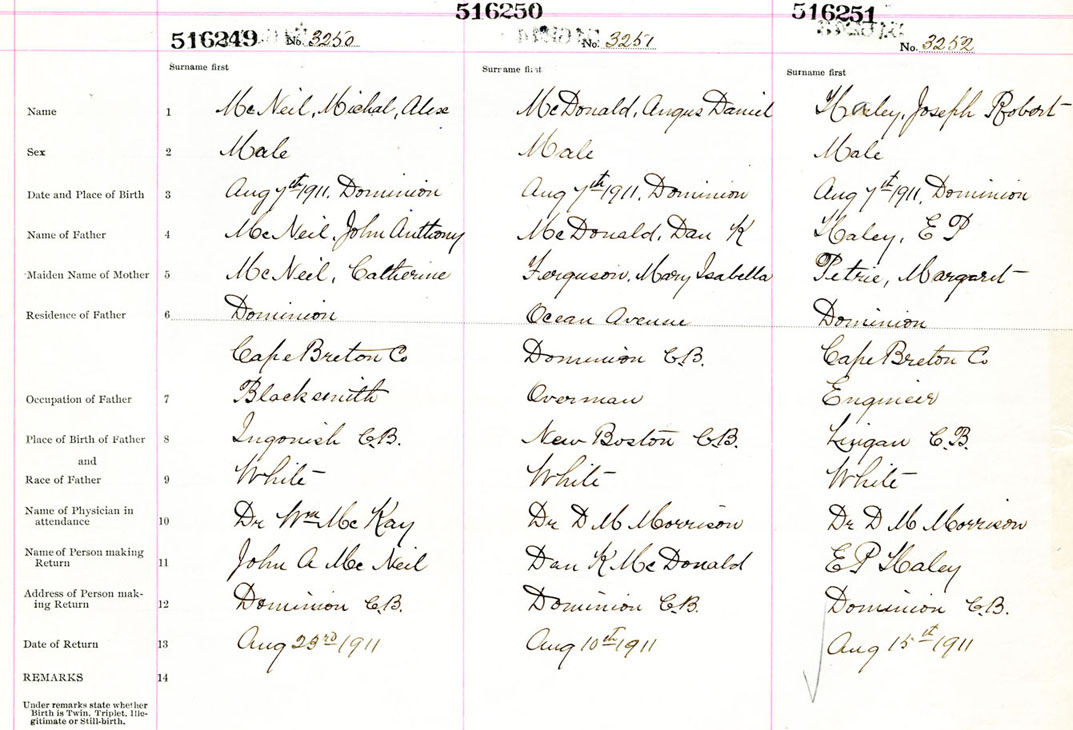 516249 No. 3250 516250 No. 3251 516251 No. 3252
Surname first Surname first Surname first
Name 1 McNeil, Michal, Alex McDonald, Angus Daniel Haley, Joseph Robert
Sex 2 Male Male Male
Date and Place of Birth 3 Aug 7th 1911. Dominion Aug 7th 1911. Dominion Aug 7th 1911, Dominion
Name of Father 4 McNeil, John Anthony McDonald, Dan K Haley, E P
Maiden Name of Mother 5 McNeil, Catherine Ferguson, Mary Isabella Petrie, Margaret
Residence of Father 6 Dominion Ocean Avenue Dominion
Cape Breton Co Dominion C.B. Cape Breton Co
Occupation of Father 7 Blacksmith Overman Engineer
Place of Birth of Father 8 Ingonish C.B. New Boston C.B. Lingan C.B.
and
Race of Father 9 White White White
Name of Physician in
attendance 10 Dr Wm McKay Dr D M Morrison Dr D M Morrison
Name of Person making
Return 11 John A McNeil Dan K McDonald E P Haley
Address of Person mak-
ing Return 12 Dominion C.B. Dominion C.B. Dominion C.B.
Date of Return 13 Aug 23rd 1911 Aug 10th 1911 Aug 15th 1911
REMARKS 14
Under remarks state whether
Birth is Twin, Triplet, Ille-
gitimate or Still-birth.